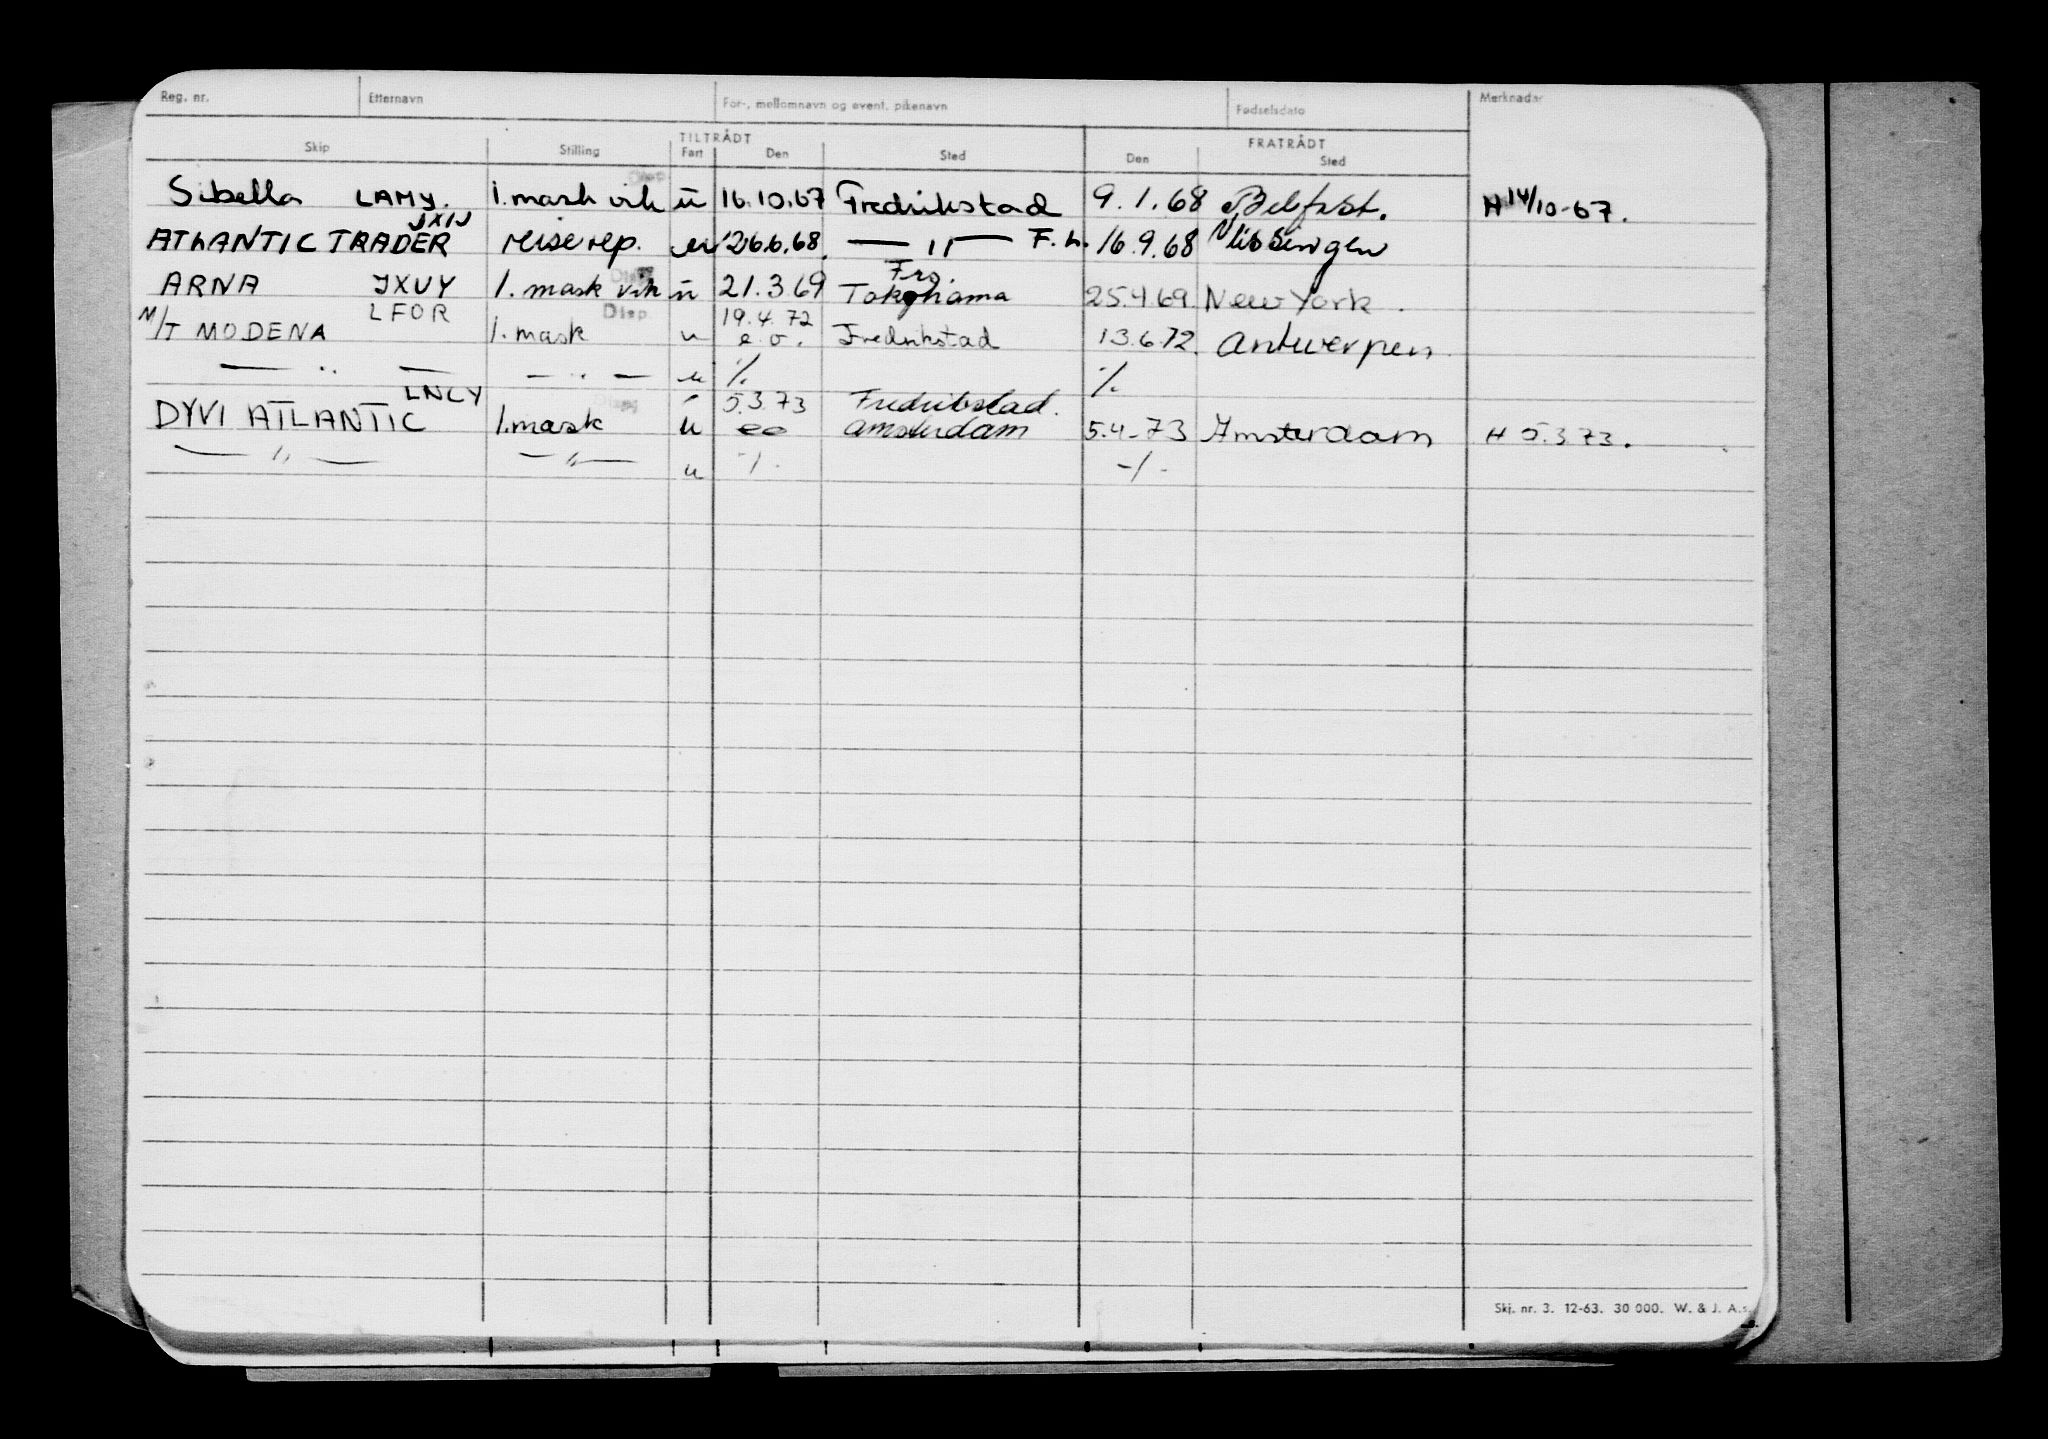 Reg. nr. Etternavn For-, mellomnavn og event. pikenavn Fødselsdato Merknader
TILTRÅDT FRATRÅDT
Skip Stilling Fart Den Sted Den Sted
Disp
Sibella LAMY. 1. mask vik ū 16.10.67 Fredrikstad 9.1.68 Belfast. H 14/10-67.
JXIJ
ATLANTIC TRADER reiserep. u 26.6.68. — " — F.L. 16.9.68 Vlissingen
Disp Frs.
ARNA JXUY 1. mask vik ū 21.3 69 Yokohama 25.4.69. New York.
LFOR Disp. 19.4.72
M/T MODENA 1. mask u e.o. Fredrikstad 13.6.72. Antwerpen.
— " — — " — u ./. ./.
LNCY Disp 5.3.73 Fredrikstad.
DYVI ATLANTIC 1. mask u eo Amsterdam 5.4-73 Amsterdam H 5.3 73.
— " — — " — u -/- -/-
Skj. nr. 3. 12-63. 30 000. W. & J. A.s.